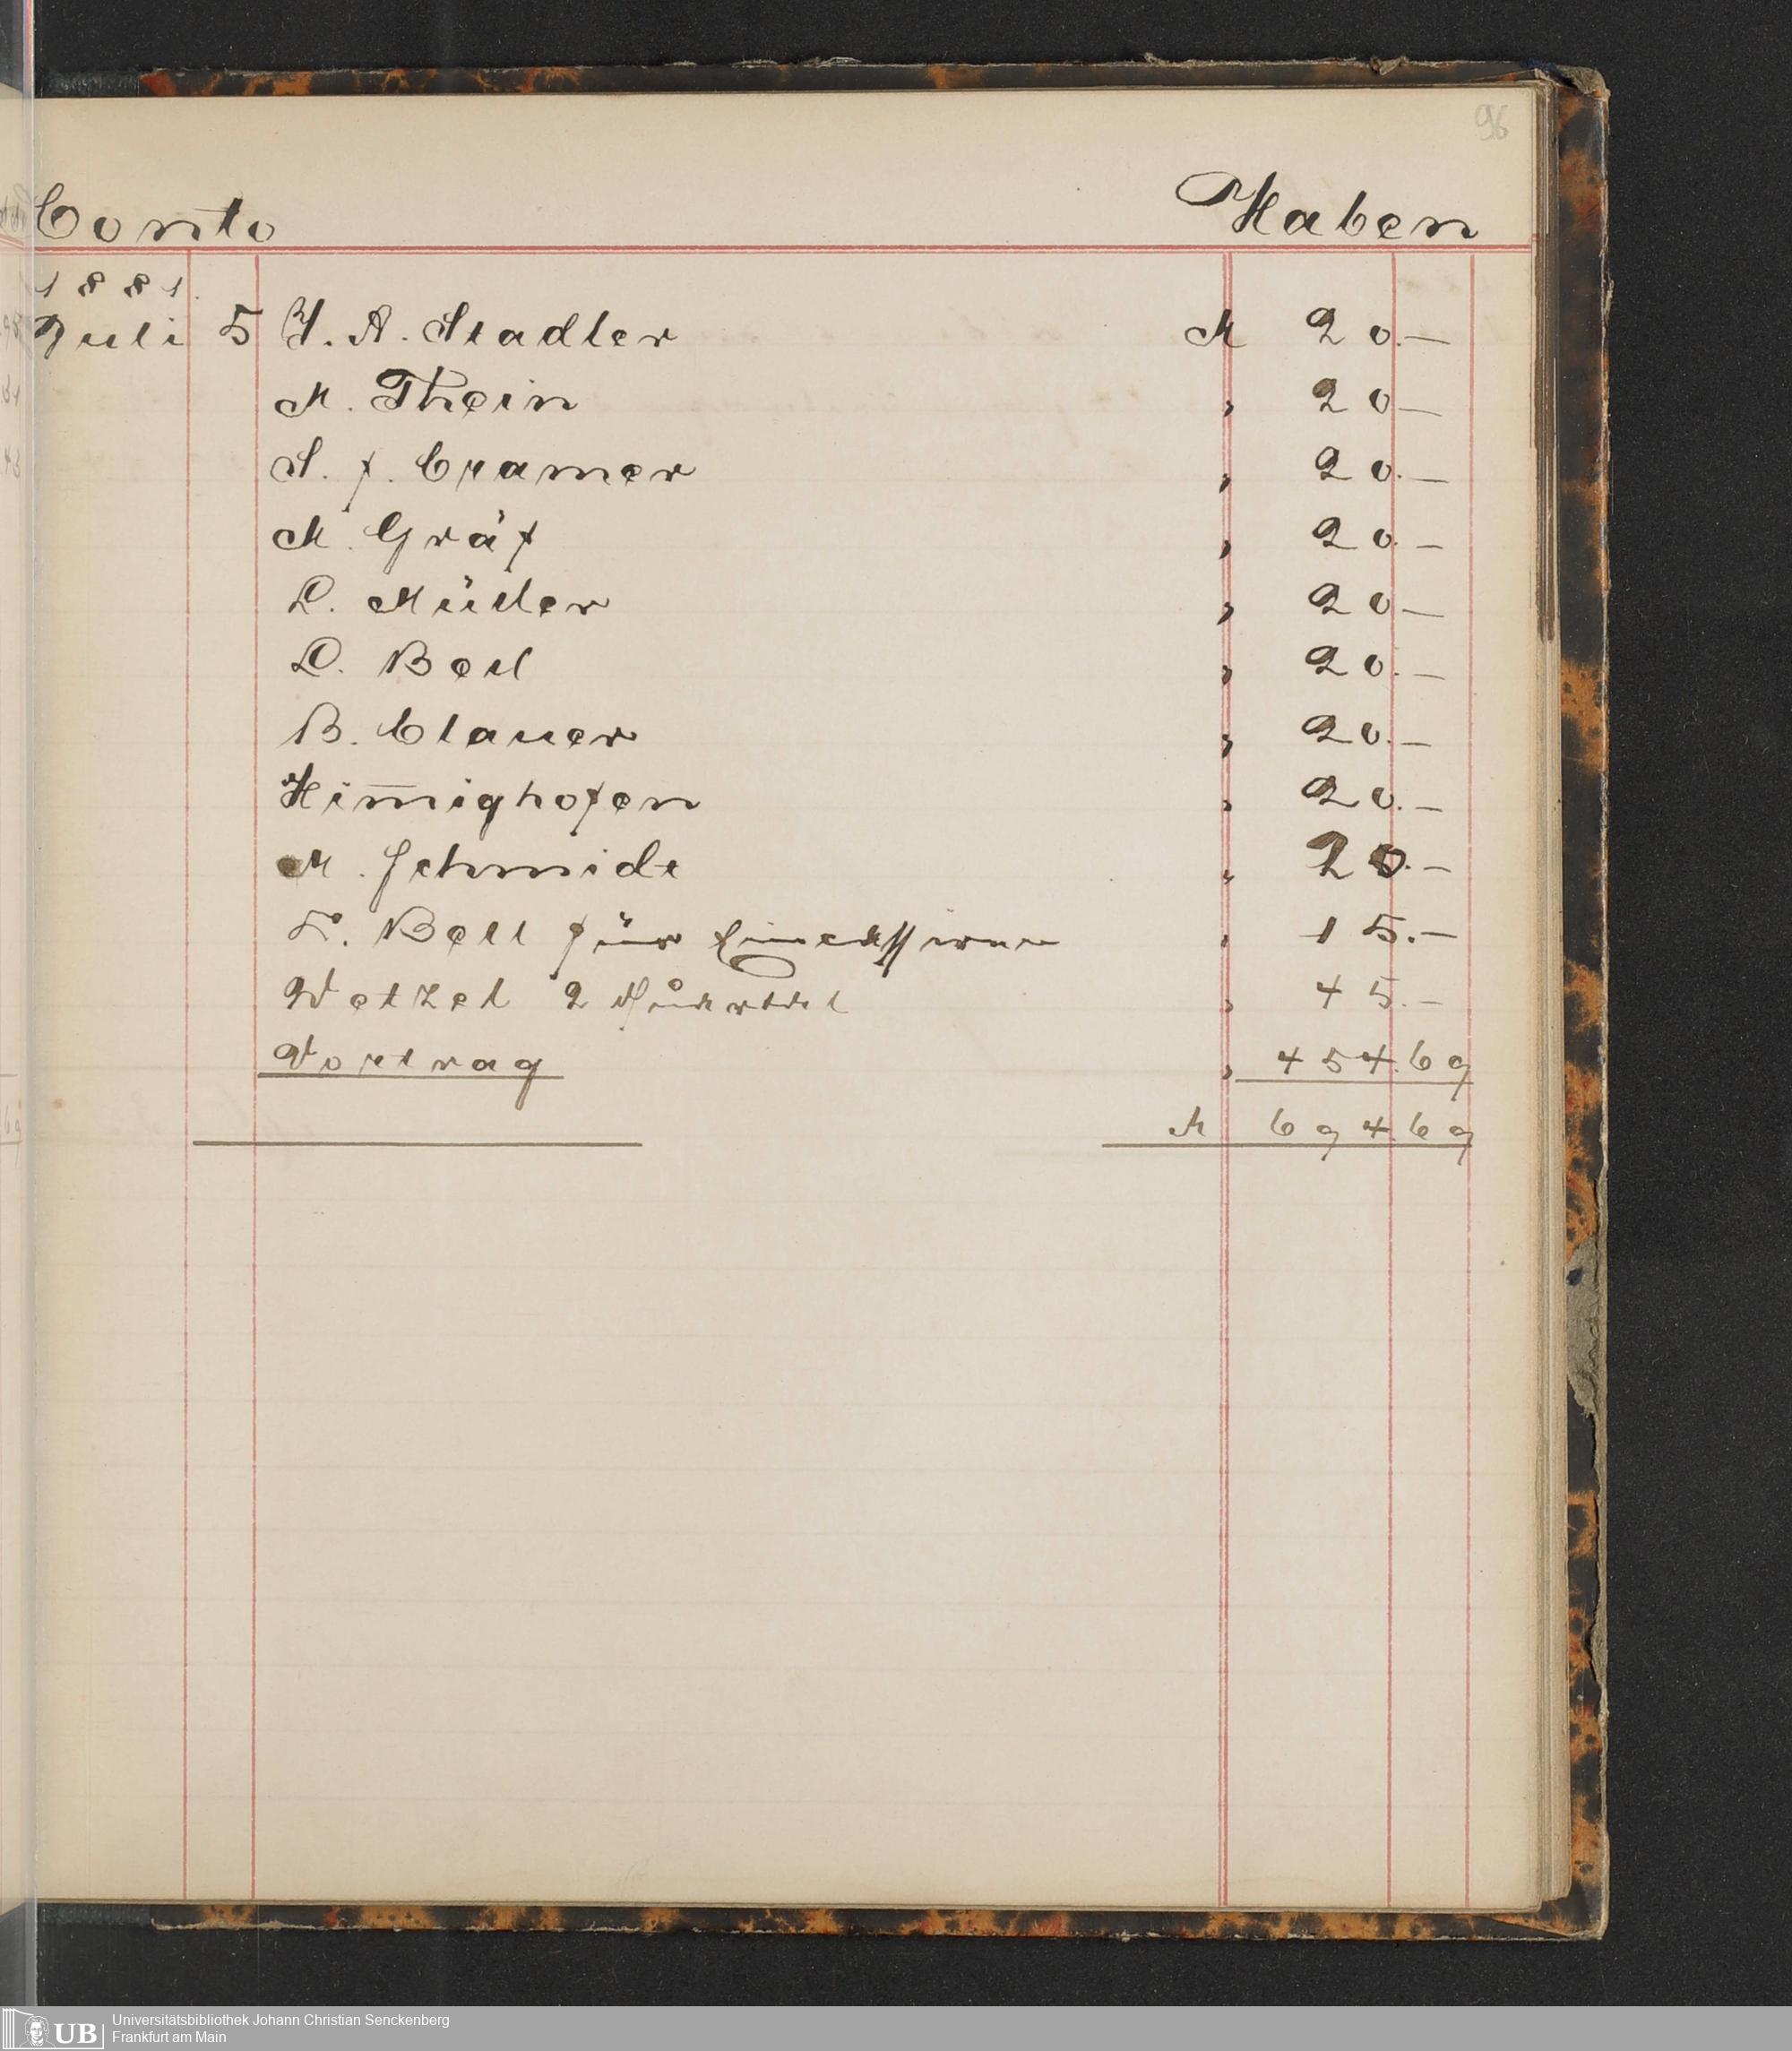 96
Conto Haben
1881.
Juli 5 J. A. Stadler M 20.—
M. Thein " 20—
S. f. Cramer " 20.—
M. Gräf " 20.—
L. Müller " 20—
L. Beil " 20.—
B. Clauer " 20.—
Him̅ighofen " 20.—
M. Schmidt " 20.—
L. Beil für " 15.—
Wetzel 2 " 45.—
Vortrag " 454.69
M 694.69
UB Universitätsbibliothek Johann Christian Senckenberg
Frankfurt am Main